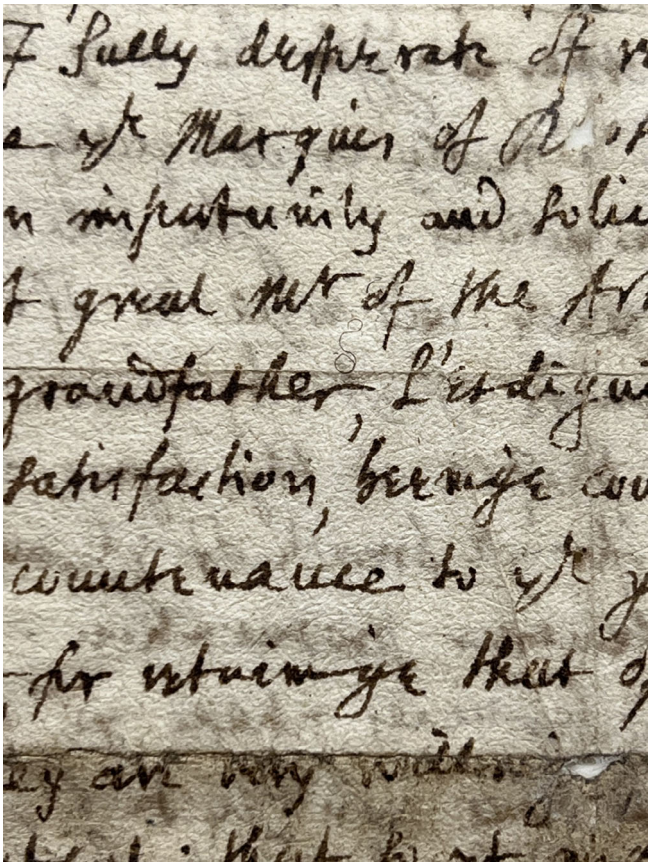 Sully desperate of
ye Marquis of
importunity and
great Mr of the
grandfather, L'esdigui
satisfaction, beeinge
countenance to ye
for retaininge that
are very willing
that